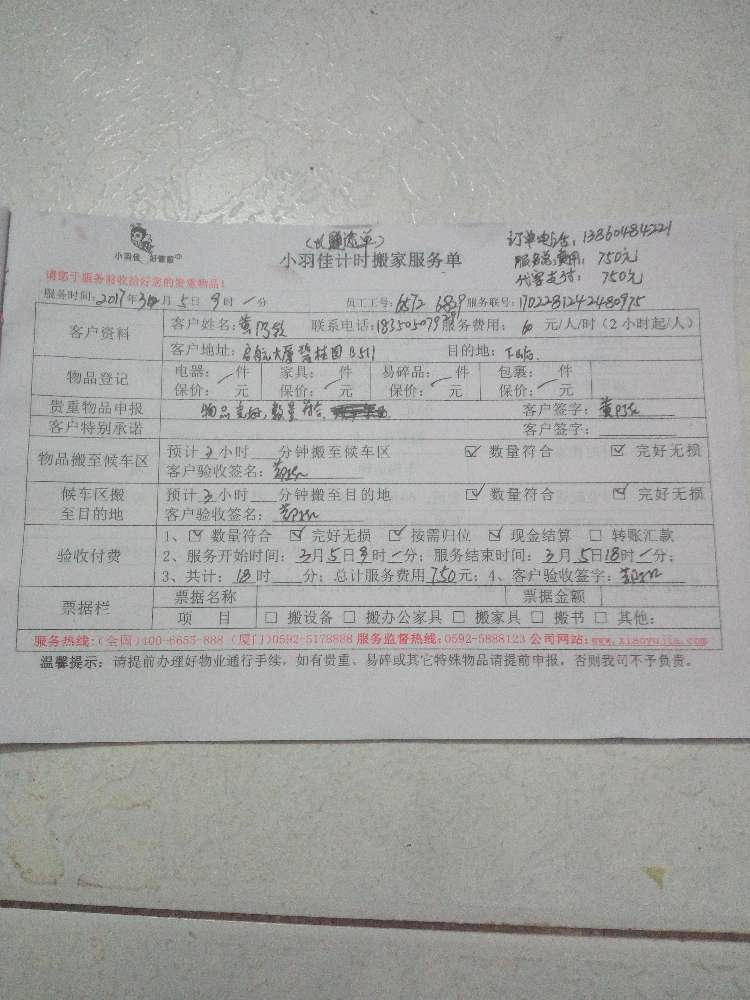 小羽佳 好管家
订单电话：13860484221
小羽佳计时搬家服务单
服务总费用：750元
代客支付：750元
请您于服务前收拾好您的贵重物品！
服务时间：2017年3月5日9时一分 员工工号：6572 6829 服务联号：1702281242480975
客户资料 客户姓名：黄 联系电话：18350507929 服务费用：60元/人/时（2小时起/人）
客户地址：启航大厦碧桂园B511 目的地：
物品登记 电器：一件 家具：一件 易碎品：一件 包裹：一件
保价：元 保价：元 保价：元 保价：元
贵重物品申报 物品完好，数量符合 客户签字：黄
客户特别承诺 客户签字：
物品搬至候车区 预计2小时 分钟搬至候车区 ☑ 数量符合 ☑ 完好无损
客户验收签名：
候车区搬至目的地 预计3小时 分钟搬至目的地 ☑ 数量符合 ☑ 完好无损
客户验收签名：
验收付费 1、☑ 数量符合 ☑ 完好无损 ☑ 按需归位 ☑ 现金结算 □ 转账汇款
2、服务开始时间：3月5日9时一分；服务结束时间：3月5日18时一分；
3、共计：18时 分；总计服务费用750元；4、客户验收签字：
票据栏 票据名称 票据金额
项 目 □ 搬设备 □ 搬办公家具 □ 搬家具 □ 搬书 □ 其他：
服务热线：（全国）400-6655-888（厦门）0592-5178888 服务监督热线：0592-5888123 公司网站：www.xiaoyujia.com
温馨提示：请提前办理好物业通行手续，如有贵重、易碎或其它特殊物品请提前申报，否则我司不予负责。